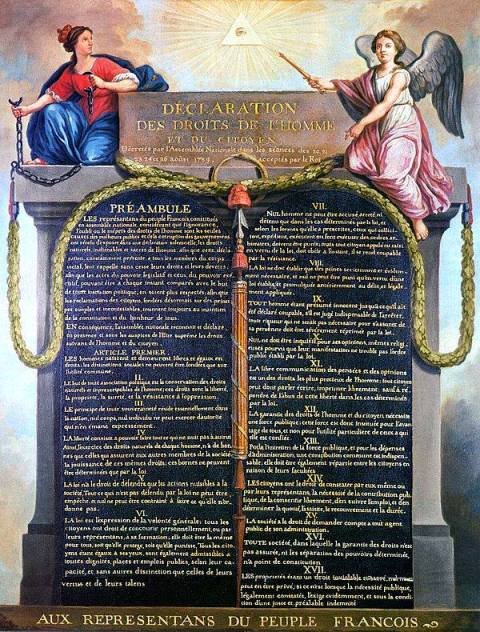 DÉCLARATION
DES DROITS DE L'HOMME
ET DU CITOYEN
Décretés par l'Assemblée Nationale dans les séances des 20, 21
23, 24 et 26 août 1789, acceptés par le Roi
PRÉAMBULE
LES représentans du peuple François, constitués
en assemblée nationale, considérant que l'ignorance,
l'oubli ou le mépris des droits de l'homme sont les seules
causes des malheurs publics et de la corruption des gouvernemens
ont résolu d'exposer dans une déclaration solemnelle, les droits
naturels, inaliénables et sacrés de l'homme; afin que cette décla-
ration, constamment présente a tous les membres du corps
social, leur rappelle sans cesse leurs droits et leurs devoirs;
afin que les actes du pouvoir législatif et ceux du pouvoir exé-
cutif, pouvant être a chaque instant comparés avec le but
de toute institution politique, en soient plus respectés; afin que
les réclamations des citoyens, fondées désormais sur des principes
simples et incontestables, tournent toujours au maintien
de la constitution et du bonheur de tous.
EN conséquence, l'assemblée nationale reconnoit et déclare,
en présence et sous les auspices de l'Etre suprême les droits
suivans de l'homme et du citoyen.
ARTICLE PREMIER.
LES hommes naissent et demeurent libres et égaux en
droits. les distinctions sociales ne peuvent être fondées que sur
l'utilité commune.
II.
LE but de toute association politique est la conservation des droits
naturels et imprescriptibles de l'homme; ces droits sont la liberté,
la propriété, la sureté, et la résistance à l'oppression.
III.
LE principe de toute souveraineté réside essentiellement dans
la nation, nul corps, nul individu ne peut exercer d'autorité
qui n'en émane expressement.
IV.
LA liberté consiste a pouvoir faire tout ce qui ne nuit pas à autrui
Ainsi, l'exercice des droits naturels de chaque homme, n'a de bor-
nes que celles qui assurent aux autres membres de la société
la jouissance de ces mêmes droits; ces bornes ne peuvent
être déterminées que par la loi.
V.
LA loi n'a le droit de défendre que les actions nuisibles a la
société. Tout ce qui n'est pas défendu par la loi ne peut être
empêché, et nul ne peut être contraint à faire ce qu'elle n'or-
donne pas.
VI.
LA loi est l'expression de la volonté générale; tous les
citoyens ont droit de concourir personnellement, ou par
leurs représentans, à sa formation; elle doit être la même
pour tous, soit qu'elle protege, soit qu'elle punisse. Tous les cito-
yens étant égaux à ses yeux, sont également admissibles à
toutes dignités, places et emplois publics, selon leur ca-
pacité, et sans autres distinction que celles de leurs
vertus et de leurs talens
VII.
NUL homme ne peut être accusé, arreté ni
détenu que dans les cas déterminés par la loi, et
selon les formes qu'elle a prescrites, ceux qui sollici-
tent, expédient, exécutent ou font exécuter des ordres ar-
bitraires, doivent être punis; mais tout citoyen appelé ou saisi
en vertu de la loi, doit obéir a l'instant, il se rend coupable
par la résistance.
VIII.
LA loi ne doit établir que des peines strictement et évidem-
ment nécessaire, et nul ne peut être puni qu'en vertu d'une
loi établie et promulguée antérieurement au délit, et légale-
ment appliquée.
IX.
TOUT homme étant présumé innocent jusqu'a ce qu'il ait
été déclaré coupable, s'il est jugé indispensable de l'arrêter,
toute rigueur qui ne serait pas nécessaire pour s'assurer de
sa personne doit être sévèrement réprimée par la loi.
X.
NUL ne doit être inquiété pour ses opinions, mêmes religi-
euses pourvu que leur manifestation ne trouble pas l'ordre
public établi par la loi.
XI.
LA libre communication des pensées et des opinions
est un des droits les plus précieux de l'homme; tout citoyen
peut donc parler écrire, imprimer librement sauf à ré-
pondre de l'abus de cette liberté dans les cas déterminés
par la loi.
XII.
LA garantie des droits de l'homme et du citoyen nécessite
une force publique; cette force est donc instituée pour l'avan-
tage de tous, et non pour l'utilité particuliere de ceux a qui
elle est confiée.
XIII.
Pour l'entretien de la force publique, et pour les dépenses
d'administration, une contribution commune est indispen-
sable; elle doit être également répartie entre les citoyens en
raison de leurs facultées
XIV.
LES citoyens ont le droit de constater par eux même ou
par leurs représentans, la nécessité de la contribution pub-
lique, de la consentir librement, d'en suivre l'emploi, et d'en
déterminer la quotité, l'assiette, le recouvrement et la durée.
XV.
LA société a le droit de demander compte a tout agent
public de son administration.
XVI.
TOUTE société, dans laquelle la garantie des droits n'est
pas assurée, ni les séparation des pouvoirs déterminée,
n'a point de constitution
XVII.
LES propriétés étant un droit inviolable et sacré, nul ne
peut en être privé, si ce n'est lorsque la nécessité publique,
légalement constatée, l'exige evidemment, et sous la condi-
tion d'une juste et préalable indemnité
AUX REPRESENTANS DU PEUPLE FRANCOIS